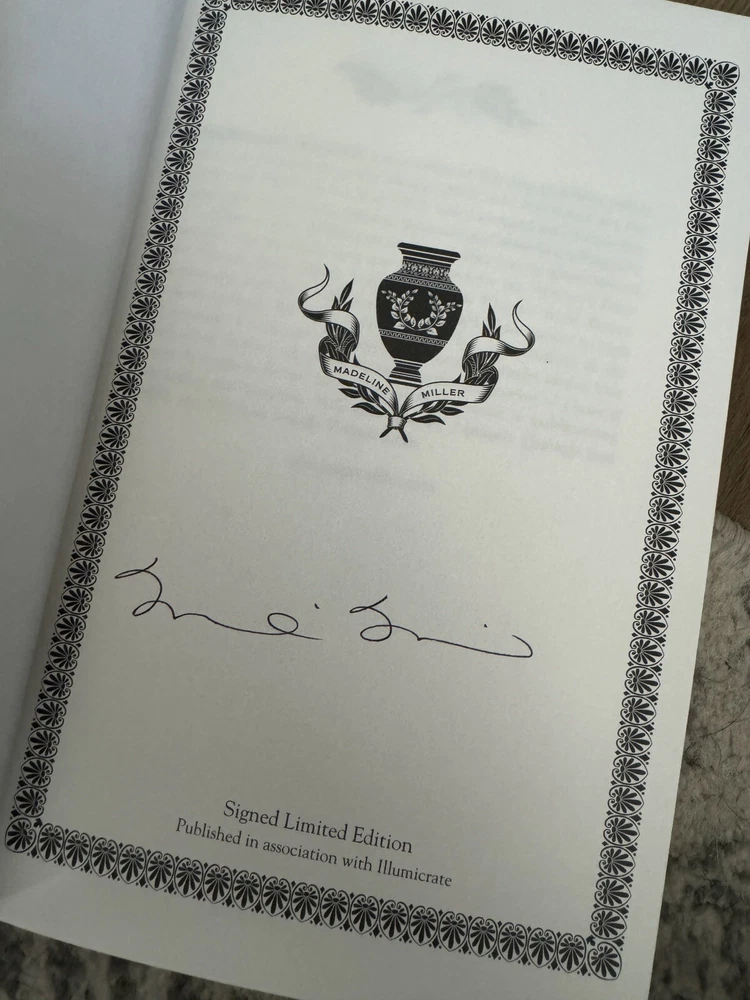 MADELINE MILLER
Signed Limited Edition
Published in association with Illumicrate